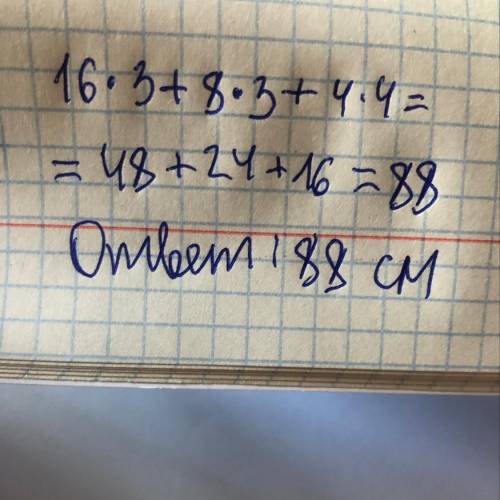 16·3+8·3+4·4=
=48+24+16=88
Ответ: 88 см